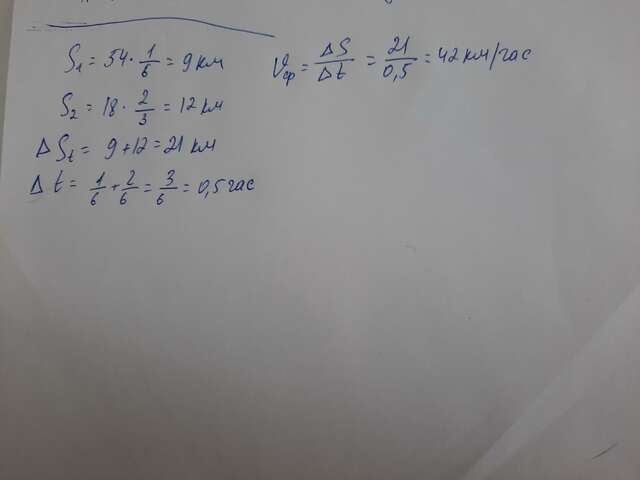 S₁ = 54 · 1/6 = 9 км
S₂ = 18 · 2/3 = 12 км
ΔSₜ = 9 + 12 = 21 км
Δt = 1/6 + 2/6 = 3/6 = 0,5 гас
Vср = ΔS/Δt = 21/0,5 = 42 км/гас